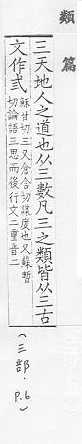 類篇
三天地人之道也从三數凡三之類皆从三古
文作弎
蘇甘切三又倉含切謀度也又蘇暫
切論語三思而後行文二重音二
(三部.P.6)